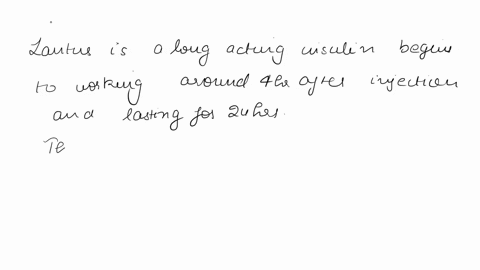 Lantus is a long acting insulin begin
to working around 4hr after injection
and lasting for 24hrs.
Te